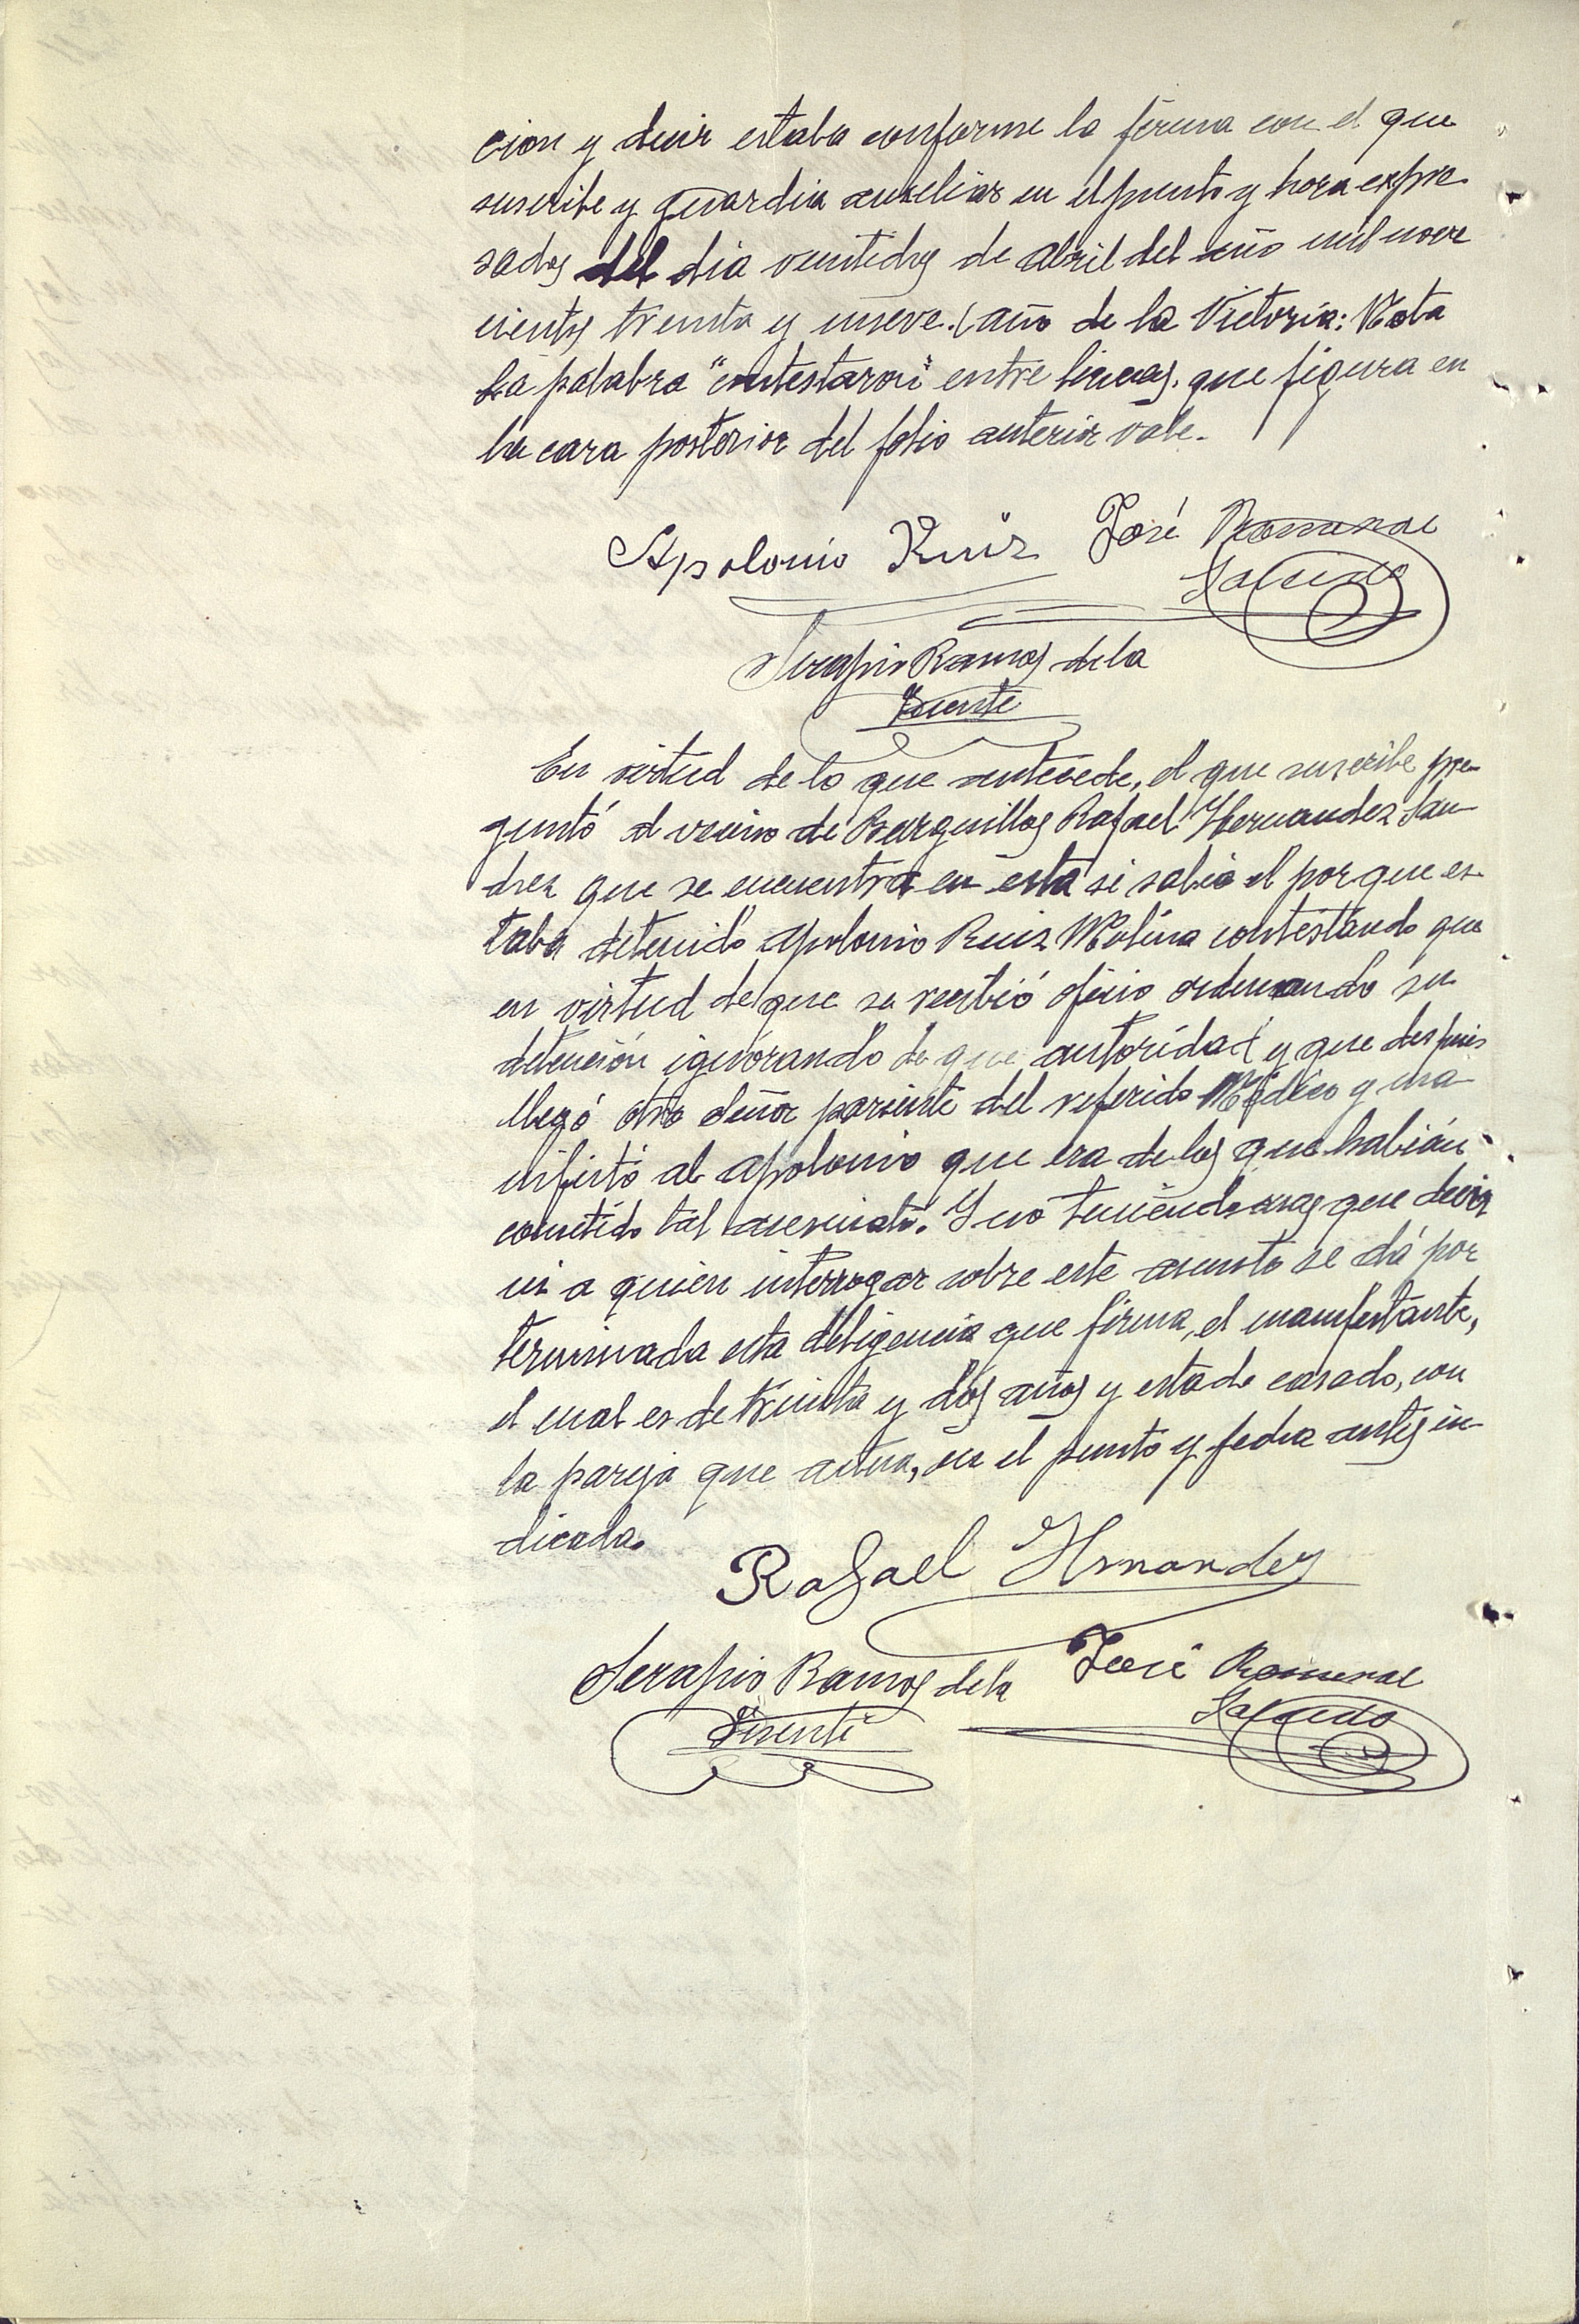 cion y decir estaba conforme la firma con el que
suscribe y guardia auxeliar en el punto y hora expre-
sados del dia ventidos de abril del año mil nove
cientos treinta y nueve. (año de la Victoria: Nota
La palabra "contestaron" entre lineas. que figura en
la cara posterior del folio anterior vale.-
Apolonio Ruiz José Romeral
Salcedo
Serapio Ramos de la
Fuente
En virtud de lo que antecede, el que suscribe pre-
guntó al vecino de Barguillos Rafael Hernandez
que se encuentra en esta si sabia el por que es-
taba detenido apolonio Ruiz Molina contestando que
en virtud de que se recibió oficio ordenando su
detención ignorando de que autoridad y que despues
llegó otro señor pariente del referido Médico y ma-
nifestó al apolonio que era de los que habian
cometido tal asesinato. Y no teniendo mas que decir
ni a quien interrogar sobre este asunto se dá por
terminada esta deligencia que firma, el manifestante,
el cual es de treinta y dos años y estado casado, con
la pareja que actua, en el punto y fecha antes in-
dicada.
Rafael Hrnandez
Serapio Ramos de la José Romeral
Fuente Salcedo